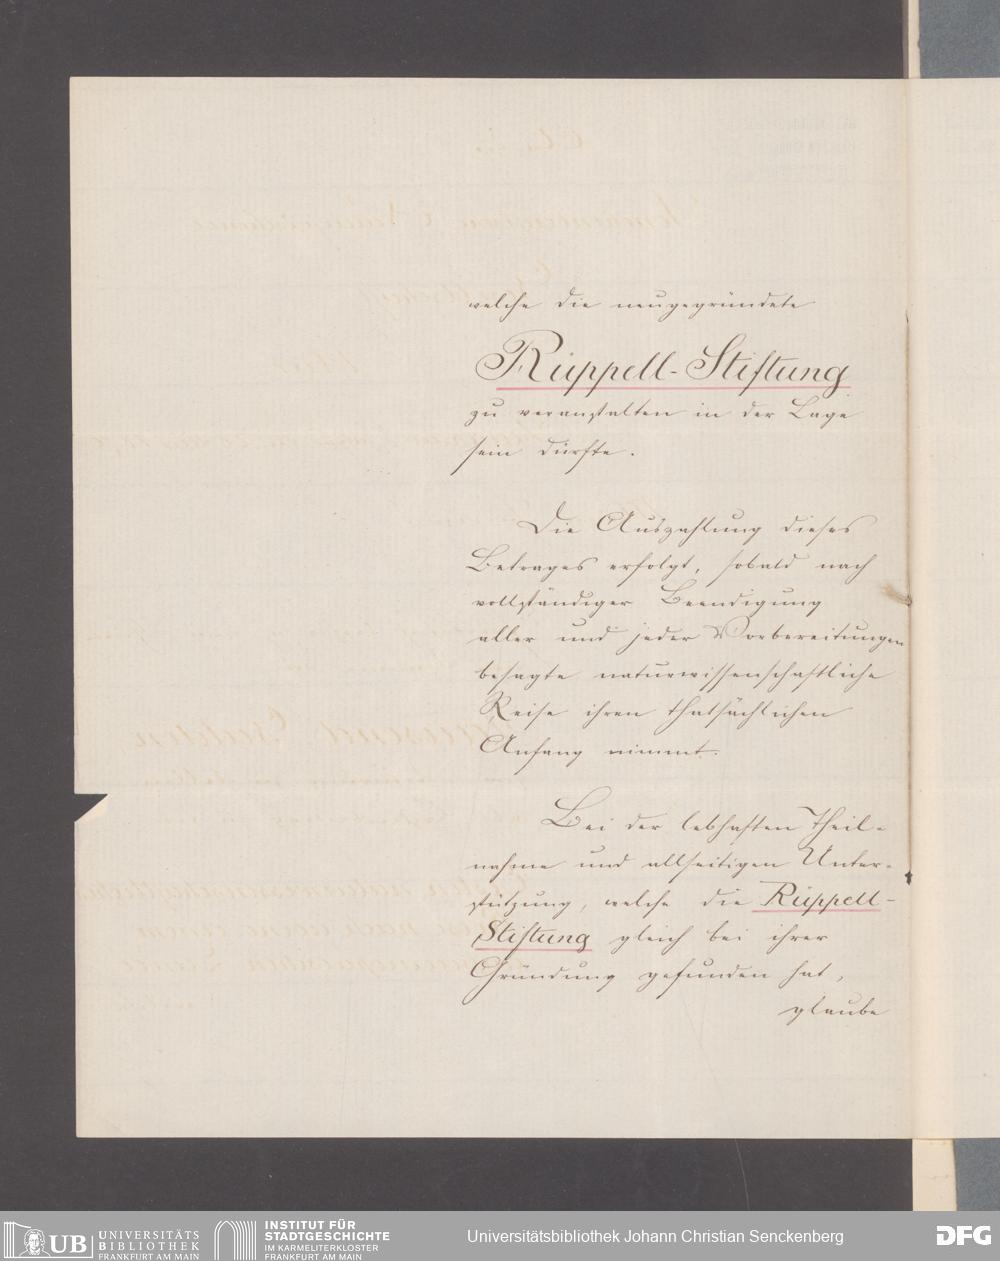 welche die neugegründete
Rüppell-Stiftung
zu veranstalten in der Lage
sein dürfte.
Die Auszahlung dieses
Betrages erfolgt, sobald nach
vollständiger Beendigung
aller und jeder Vorbereitungen
besagte naturwissenschaftliche
Reise ihren thatsächlichen
Anfang nimmt.
Bei der lebhaften Theil-
nahme und allseitigen Unter-
stützung, welche die Rüppell-
Stiftung gleich bei ihrer
Gründung gefunden hat,
glaube
UB UNIVERSITÄTS
BIBLIOTHEK
FRANKFURT AM MAIN
INSTITUT FÜR
STADTGESCHICHTE
IM KARMELITERKLOSTER
FRANKFURT AM MAIN
Universitätsbibliothek Johann Christian Senckenberg
DFG